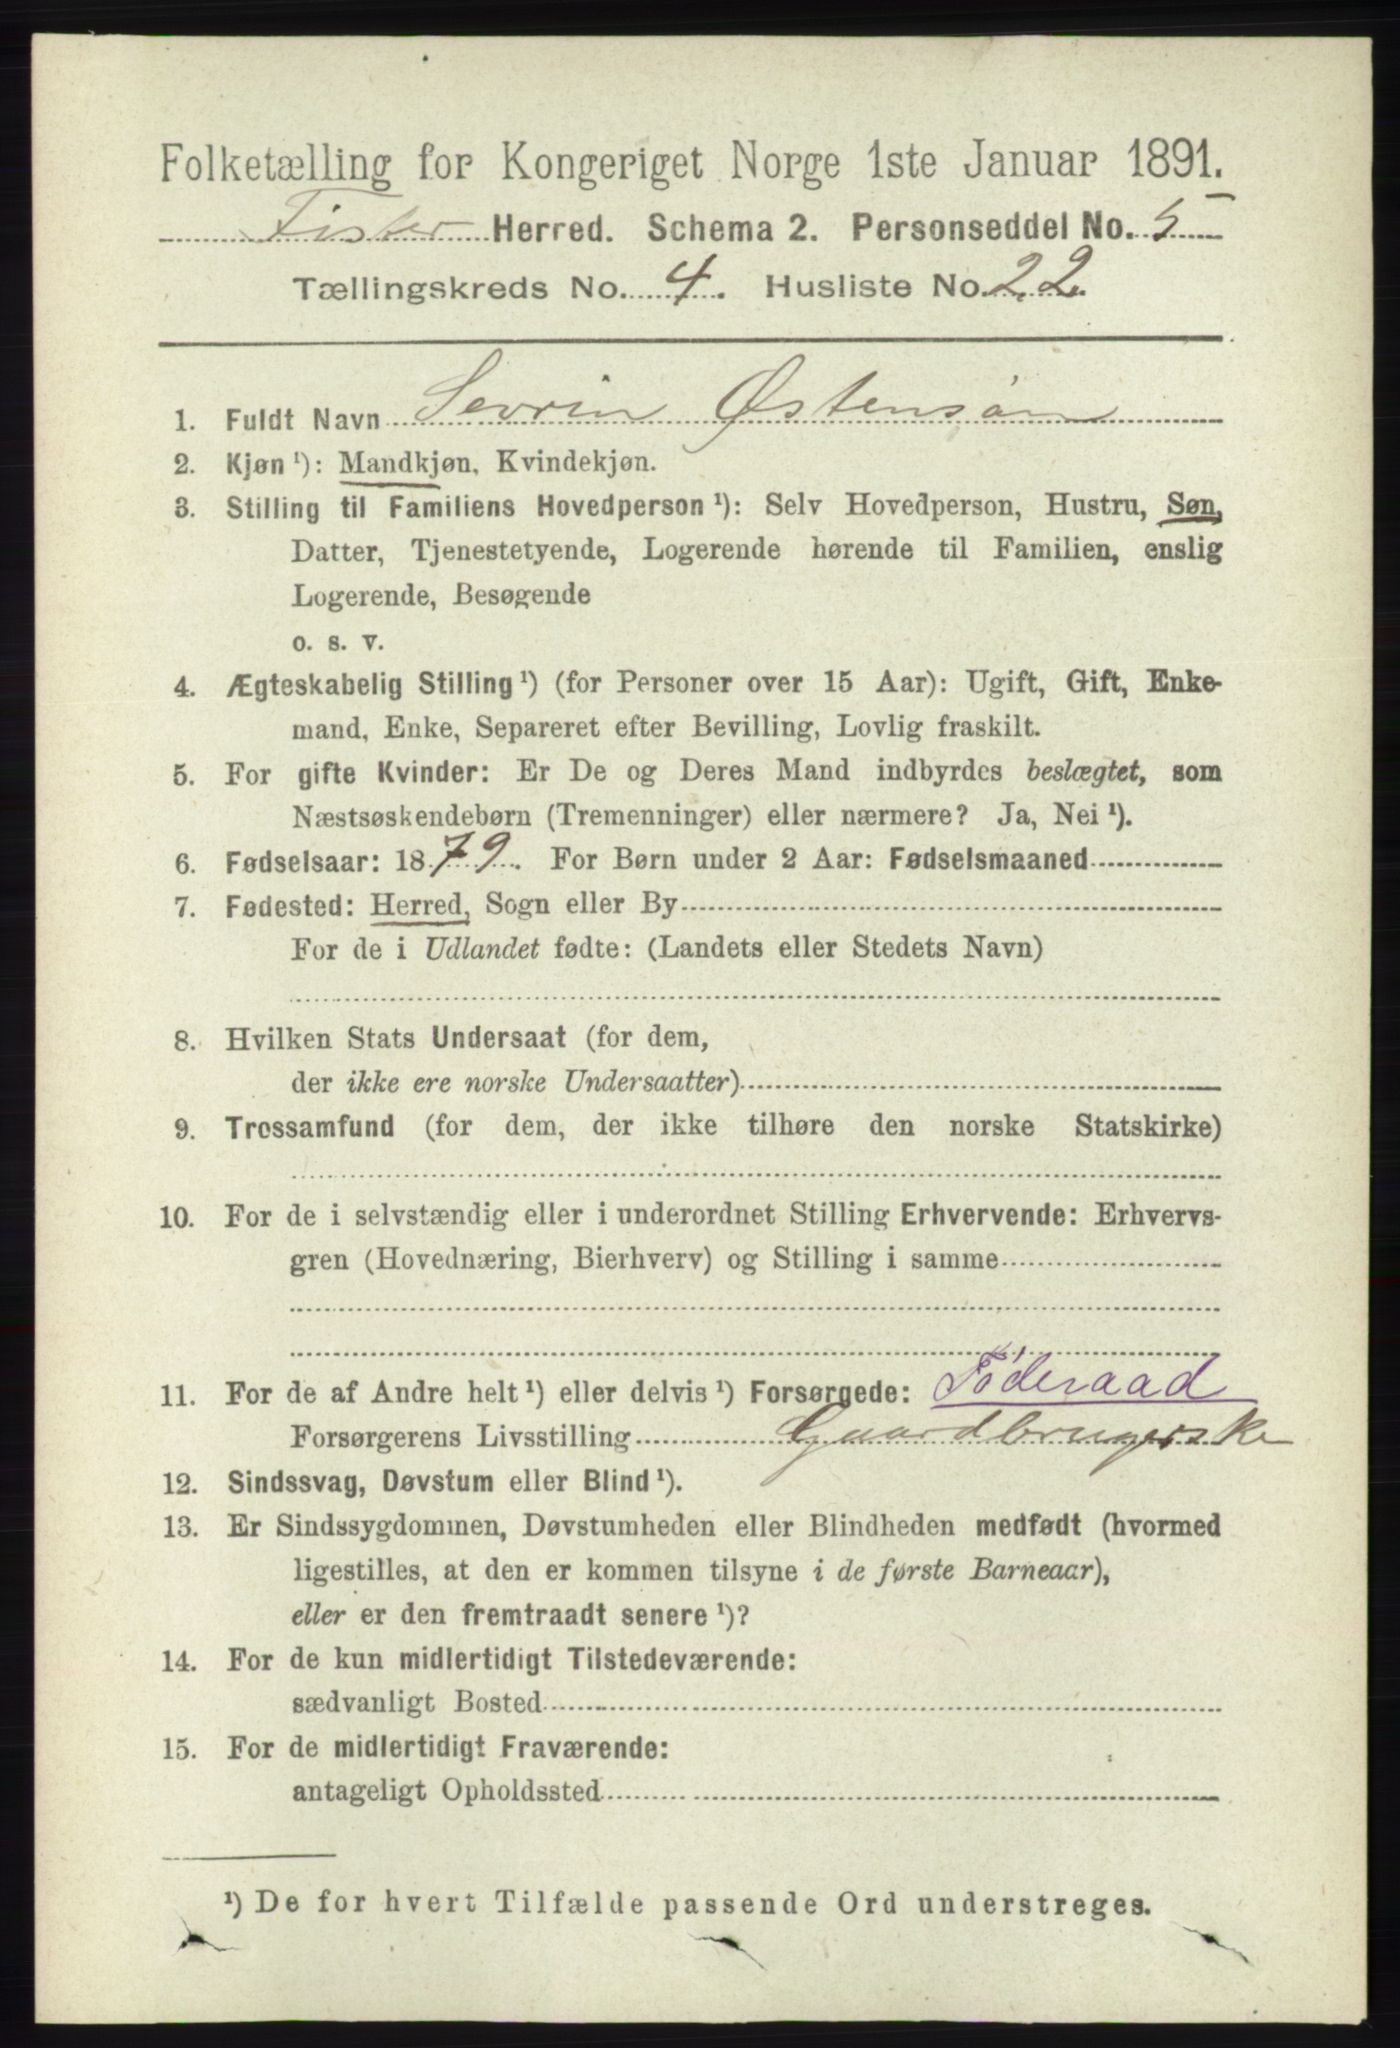 Folketælling for Kongeriget Norge 1ste Januar 1891.
Fister Herred. Schema 2. Personseddel No. 5
Tællingskreds No. 4. Husliste No. 22.
1. Fuldt Navn Sevrin Østensøn
2. Kjøn ¹): Mandkjøn, Kvindekjøn.
3. Stilling til Familiens Hovedperson ¹): Selv Hovedperson, Hustru, Søn,
Datter, Tjenestetyende, Logerende hørende til Familien, enslig
Logerende, Besøgende
o. s. v.
4. Ægteskabelig Stilling ¹) (for Personer over 15 Aar): Ugift, Gift, Enke-
mand, Enke, Separeret efter Bevilling, Lovlig fraskilt.
5. For gifte Kvinder: Er De og Deres Mand indbyrdes beslægtet, som
Næstsøskendebørn (Tremenninger) eller nærmere? Ja, Nei ¹).
6. Fødselsaar: 1879. For Børn under 2 Aar: Fødselsmaaned
7. Fødested: Herred, Sogn eller By
For de i Udlandet fødte: (Landets eller Stedets Navn)
8. Hvilken Stats Undersaat (for dem,
der ikke ere norske Undersaatter)
9. Trossamfund (for dem, der ikke tilhøre den norske Statskirke)
10. For de i selvstændig eller i underordnet Stilling Erhvervende: Erhvervs-
gren (Hovednæring, Bierhverv) og Stilling i samme
11. For de af Andre helt ¹) eller delvis ¹) Forsørgede: Føderaad
Forsørgerens Livsstilling Gaardbrugerske
12. Sindssvag, Døvstum eller Blind ¹).
13. Er Sindssygdommen, Døvstumheden eller Blindheden medfødt (hvormed
ligestilles, at den er kommen tilsyne i de første Barneaar),
eller er den fremtraadt senere ¹)?
14. For de kun midlertidigt Tilstedeværende:
sædvanligt Bosted
15. For de midlertidigt Fraværende:
antageligt Opholdssted
¹) De for hvert Tilfælde passende Ord understreges.